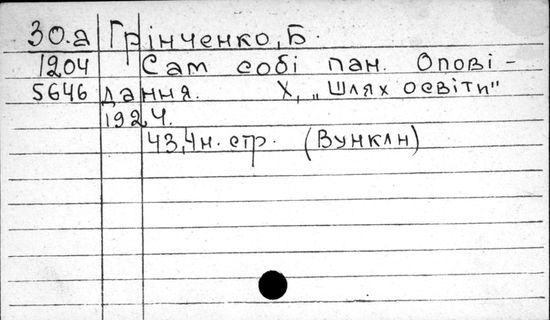 30.а Грінченко, Б.
1204 Сам собі пан. Опові-
5646 дання. Х, „Шлях освіти"
1924.
43,4н. стр. (Вунклн)